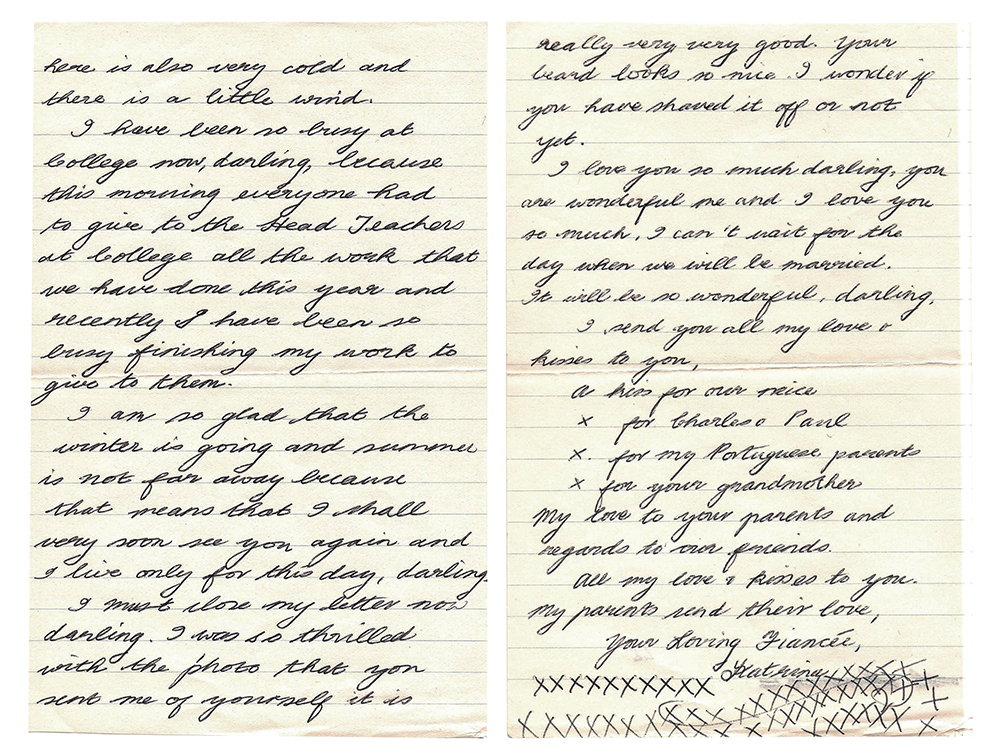 here is also very cold and
there is a little wind.
I have been so busy at
College now, darling, because
this morning everyone had
to give to the Head Teachers
at College all the work that
we have done this year and
recently I have been so
busy finishing my work to
give to them.
I am so glad that the
winter is going and summer
is not far away because
that means that I shall
very soon see you again and
I live only for this day, darling.
I must close my letter now
darling. I was so thrilled
with the photo that you
sent me of yourself it is
really very very good. Your
beard looks so nice. I wonder if
you have shaved it off or not
yet.
I love you so much darling, you
are wonderful me and I love you
so much, I can't wait for the
day when we will be married.
It will be so wonderful, darling,
I send you all my love &
kisses to you,
A kiss for our neice
x for Charles & Paul
x. for my Portuguese parents
x for your grandmother
My love to your parents and
regards to our friends.
All my love & kisses to you.
My parents send their love,
Your Loving Fiancée,
Kathrine
XXXXXXXXXX